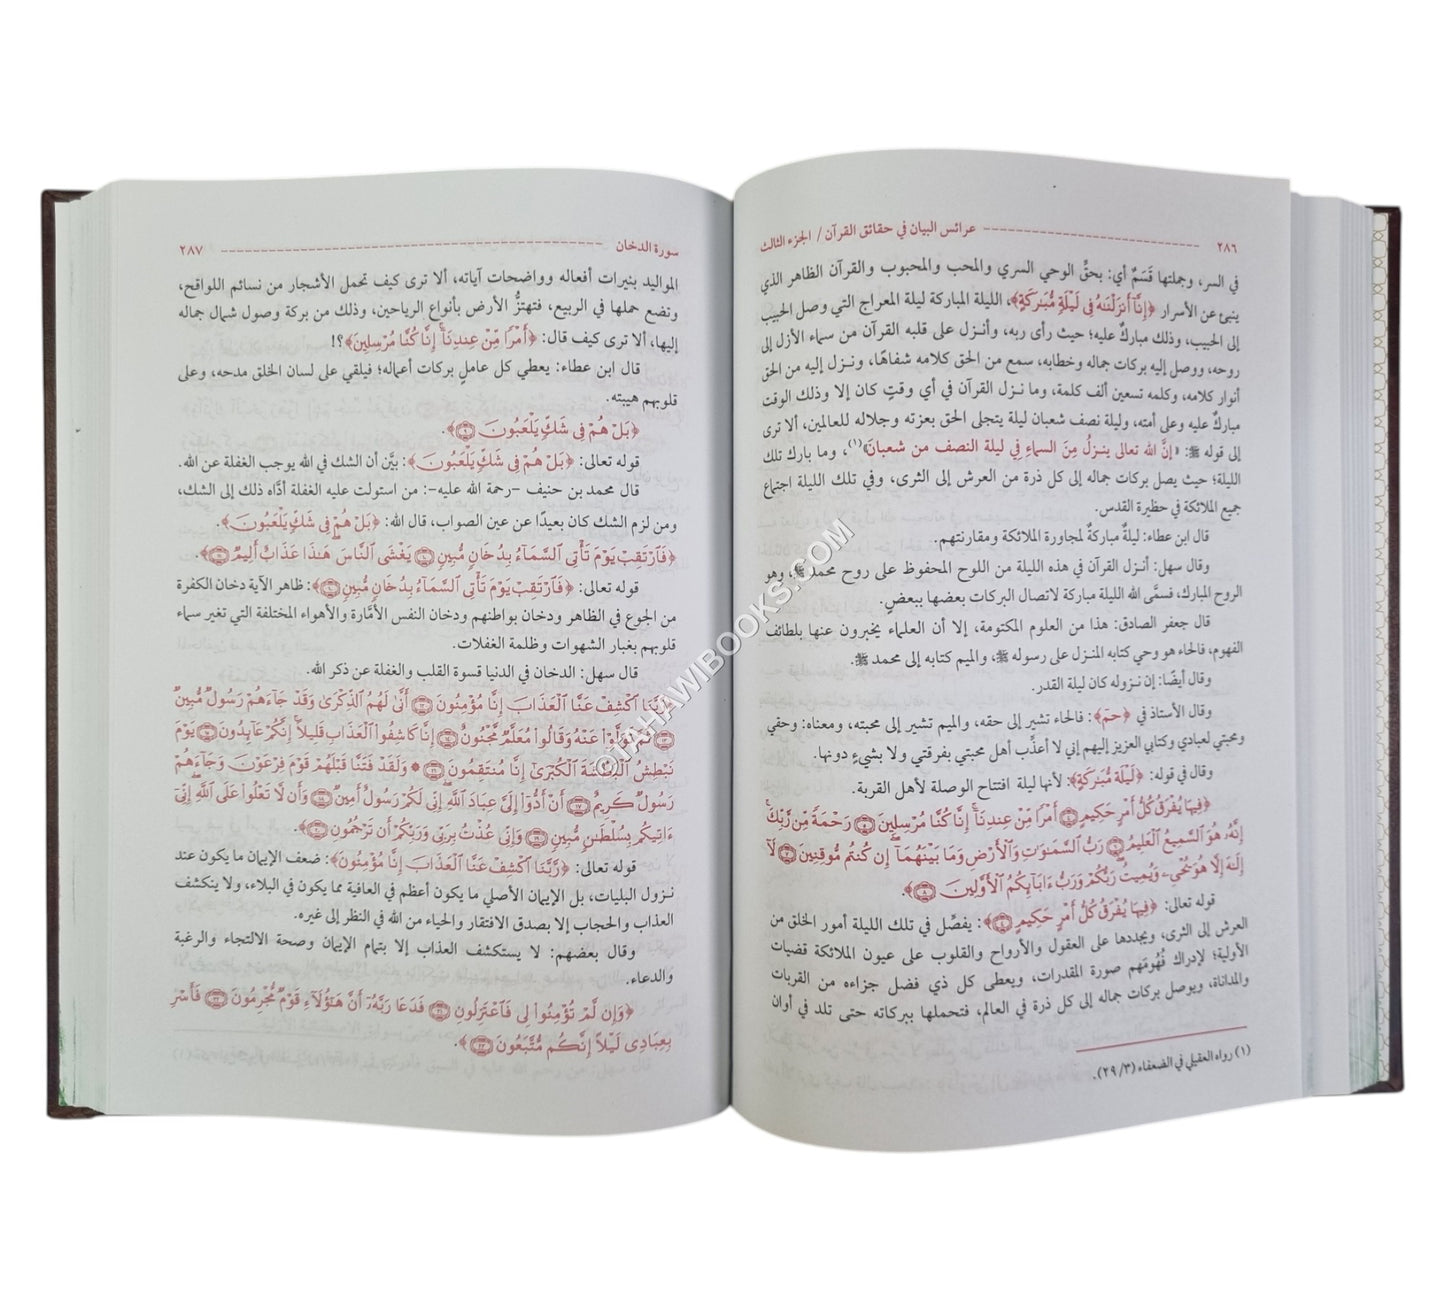 ٢٨٦ عرائس البيان في حقائق القرآن / الجزء الثالث
في السر، وجملتها قَسَمٌ أي: بحقِّ الوحي السري والمحب والمحبوب والقرآن الظاهر الذي
ينبئ عن الأسرار ﴿إِنَّآ أَنزَلْنَٰهُ فِى لَيْلَةٍ مُّبَٰرَكَةٍ﴾، الليلة المباركة ليلة المعراج التي وصل الحبيب
إلى الحبيب، وذلك مباركٌ عليه؛ حيث رأى ربه، وأنـزل على قلبه القرآن من سماء الأزل إلى
روحه، ووصل إليه بركات جماله وخطابه، سمع من الحق كلامه شفاهًا، ونـزل إليه من الحق
أنوار كلامه، وكلمه تسعين ألف كلمة، وما نـزل القرآن في أي وقتٍ كان إلا وذلك الوقت
مباركٌ عليه وعلى أمته، وليلة نصف شعبان ليلة يتجلى الحق بعزته وجلاله للعالمين، ألا ترى
إلى قوله ﷺ: «إنَّ الله تعالى ينـزلُ مِنَ السماءِ فِي ليلة النصف من شعبان»(١)، وما بارك تلك
الليلة؛ حيث يصل بركات جماله إلى كل ذرة من العرش إلى الثرى، وفي تلك الليلة اجتماع
جميع الملائكة في حظيرة القدس.
قال ابن عطاء: ليلةٌ مباركةٌ لمجاورة الملائكة ومقارنتهم.
وقال سهل: أنـزل القرآن في هذه الليلة من اللوح المحفوظ على روح محمد ﷺ، وهو
الروح المبارك، فسمَّى الله الليلة مباركة لاتصال البركات بعضها ببعضٍ.
قال جعفر الصادق: هذا من العلوم المكتومة، إلا أن العلماء يخبرون عنها بلطائف
الفهوم، فالحاء هو وحي كتابه المنـزل على رسوله ﷺ، والميم كتابه إلى محمد ﷺ.
وقال أيضًا: إن نـزوله كان ليلة القدر.
وقال الأستاذ في ﴿حمٓ﴾: فالحاء تشير إلى حقه، والميم تشير إلى محبته، ومعناه: وحقي
ومحبتي لعبادي وكتابي العزيز إليهم إني لا أعذِّب أهل محبتي بفرقتي ولا بشيءٍ دونها.
وقال في قوله: ﴿لَيْلَةٍ مُّبَٰرَكَةٍ﴾: لأنها ليلة افتتاح الوصلة لأهل القربة.
﴿فِيهَا يُفْرَقُ كُلُّ أَمْرٍ حَكِيمٍ ۝٤ أَمْرًا مِّنْ عِندِنَآ ۚ إِنَّا كُنَّا مُرْسِلِينَ ۝٥ رَحْمَةً مِّن رَّبِّكَ ۚ
إِنَّهُۥ هُوَ ٱلسَّمِيعُ ٱلْعَلِيمُ ۝٦ رَبُّ ٱلسَّمَٰوَٰتِ وَٱلْأَرْضِ وَمَا بَيْنَهُمَآ ۖ إِن كُنتُم مُّوقِنِينَ ۝٧ لَآ
إِلَٰهَ إِلَّا هُوَ يُحْىِۦ وَيُمِيتُ ۖ رَبُّكُمْ وَرَبُّ ءَابَآئِكُمُ ٱلْأَوَّلِينَ ۝٨﴾.
قوله تعالى: ﴿فِيهَا يُفْرَقُ كُلُّ أَمْرٍ حَكِيمٍ ۝٤﴾: يفصِّل في تلك الليلة أمور الخلق من
العرش إلى الثرى، ويجددها على العقول والأرواح والقلوب على عيون الملائكة قضيات
الأولية؛ لإدراك فُهُومَهم صورة المقدرات، ويعطى كل ذي فضل جزاءه من القربات
والمداناة، ويوصل بركات جماله إلى كل ذرة في العالم، فتحملها ببركاته حتى تلد في أوان
(١) رواه العقيلي في الضعفاء (٣/ ٢٩).
سورة الدخان ٢٨٧
المواليد بنيرات أفعاله وواضحات آياته، ألا ترى كيف تحمل الأشجار من نسائم اللواقح،
ونضع حملها في الربيع، فتهتزُّ الأرض بأنواع الرياحين، وذلك من بركة وصول شمال جماله
إليها، ألا ترى كيف قال: ﴿أَمْرًا مِّنْ عِندِنَآ ۚ إِنَّا كُنَّا مُرْسِلِينَ﴾؟!
قال ابن عطاء: يعطي كل عاملٍ بركات أعماله؛ فيلقي على لسان الخلق مدحه، وعلى
قلوبهم هيبته.
﴿بَلْ هُمْ فِى شَكٍّ يَلْعَبُونَ ۝٩﴾.
قوله تعالى: ﴿بَلْ هُمْ فِى شَكٍّ يَلْعَبُونَ﴾: بيَّن أن الشك في الله يوجب الغفلة عن الله.
قال محمد بن حنيف –رحمة الله عليه–: من استولت عليه الغفلة أدَّاه ذلك إلى الشك،
ومن لزم الشك كان بعيدًا عن عين الصواب، قال الله: ﴿بَلْ هُمْ فِى شَكٍّ يَلْعَبُونَ﴾.
﴿فَٱرْتَقِبْ يَوْمَ تَأْتِى ٱلسَّمَآءُ بِدُخَانٍ مُّبِينٍ ۝١٠ يَغْشَى ٱلنَّاسَ ۖ هَٰذَا عَذَابٌ أَلِيمٌ ۝١١﴾.
قوله تعالى: ﴿فَٱرْتَقِبْ يَوْمَ تَأْتِى ٱلسَّمَآءُ بِدُخَانٍ مُّبِينٍ ۝١٠﴾: ظاهر الآية دخان الكفرة
من الجوع في الظاهر ودخان بواطنهم ودخان النفس الأمَّارة والأهواء المختلفة التي تغير سماء
قلوبهم بغبار الشهوات وظلمة الغفلات.
قال سهل: الدخان في الدنيا قسوة القلب والغفلة عن ذكر الله.
﴿رَّبَّنَا ٱكْشِفْ عَنَّا ٱلْعَذَابَ إِنَّا مُؤْمِنُونَ ۝١٢ أَنَّىٰ لَهُمُ ٱلذِّكْرَىٰ وَقَدْ جَآءَهُمْ رَسُولٌ مُّبِينٌ
۝١٣ ثُمَّ تَوَلَّوْا۟ عَنْهُ وَقَالُوا۟ مُعَلَّمٌ مَّجْنُونٌ ۝١٤ إِنَّا كَاشِفُوا۟ ٱلْعَذَابِ قَلِيلًا ۚ إِنَّكُمْ عَآئِدُونَ ۝١٥ يَوْمَ
نَبْطِشُ ٱلْبَطْشَةَ ٱلْكُبْرَىٰٓ إِنَّا مُنتَقِمُونَ ۝١٦ ۞ وَلَقَدْ فَتَنَّا قَبْلَهُمْ قَوْمَ فِرْعَوْنَ وَجَآءَهُمْ
رَسُولٌ كَرِيمٌ ۝١٧ أَنْ أَدُّوٓا۟ إِلَىَّ عِبَادَ ٱللَّهِ ۖ إِنِّى لَكُمْ رَسُولٌ أَمِينٌ ۝١٨ وَأَن لَّا تَعْلُوا۟ عَلَى ٱللَّهِ ۖ إِنِّىٓ
ءَاتِيكُم بِسُلْطَٰنٍ مُّبِينٍ ۝١٩ وَإِنِّى عُذْتُ بِرَبِّى وَرَبِّكُمْ أَن تَرْجُمُونِ ۝٢٠﴾.
قوله تعالى: ﴿رَّبَّنَا ٱكْشِفْ عَنَّا ٱلْعَذَابَ إِنَّا مُؤْمِنُونَ﴾: ضعف الإيمان ما يكون عند
نـزول البليات، بل الإيمان الأصلي ما يكون أعظم في العافية مما يكون في البلاء، ولا ينكشف
العذاب والحجاب إلا بصدق الافتقار والحياء من الله في النظر إلى غيره.
وقال بعضهم: لا يستكشف العذاب إلا بتمام الإيمان وصحة الالتجاء والرغبة
والدعاء.
﴿وَإِن لَّمْ تُؤْمِنُوا۟ لِى فَٱعْتَزِلُونِ ۝٢١ فَدَعَا رَبَّهُۥٓ أَنَّ هَٰٓؤُلَآءِ قَوْمٌ مُّجْرِمُونَ ۝٢٢ فَأَسْرِ
بِعِبَادِى لَيْلًا إِنَّكُم مُّتَّبَعُونَ ۝٢٣﴾.
©TAHAWIBOOKS.COM